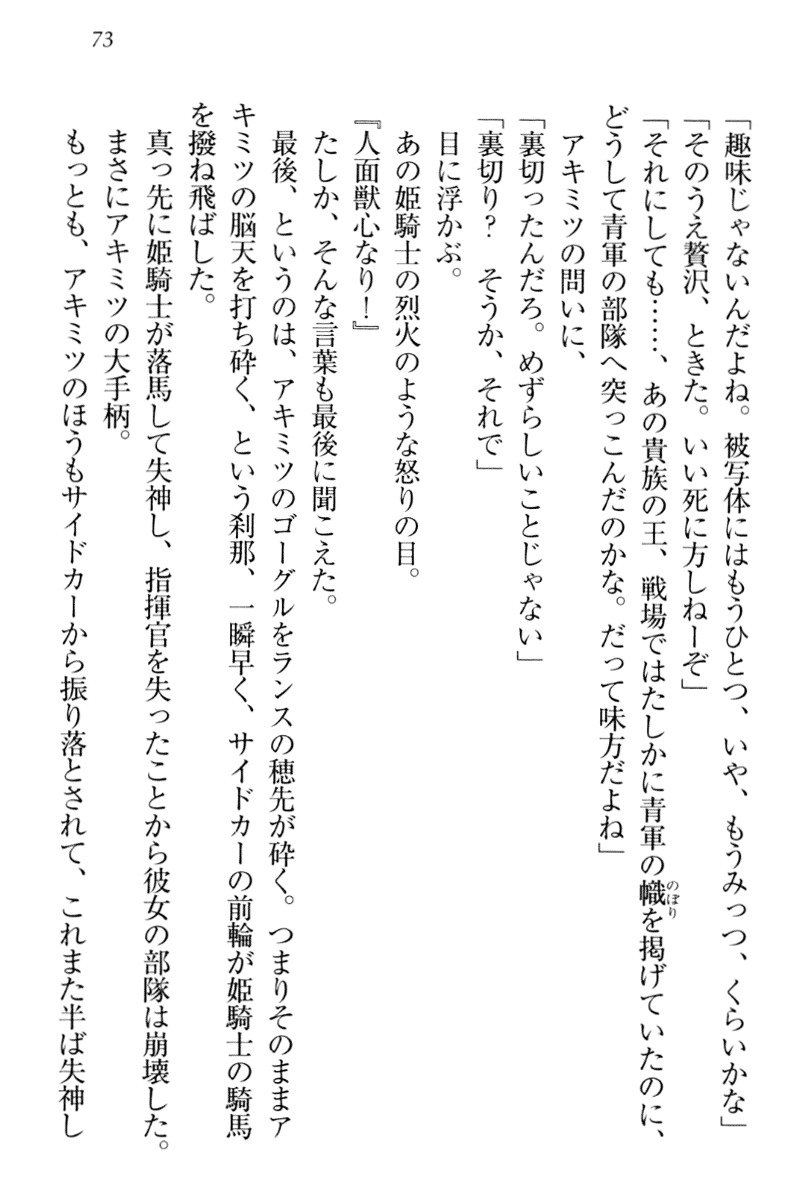 73
「趣味じゃないんだよね。被写体にはもうひとつ、いや、もうみっつ、くらいかな」
「そのうえ贅沢、ときた。いい死に方しねーぞ」
「それにしても……、あの貴族の王、戦場ではたしかに青軍の幟を掲げていたのに、
のぼり
どうして青軍の部隊へ突っこんだのかな。だって味方だよね」
アキミツの問いに、
「裏切ったんだろ。めずらしいことじゃない」
「裏切り？　そうか、それで」
目に浮かぶ。
あの姫騎士の烈火のような怒りの目。
『人面獣心なり！』
たしか、そんな言葉も最後に聞こえた。
最後、というのは、アキミツのゴーグルをランスの穂先が砕く。つまりそのままア
キミツの脳天を打ち砕く、という刹那、一瞬早く、サイドカーの前輪が姫騎士の騎馬
を撥ね飛ばした。
真っ先に姫騎士が落馬して失神し、指揮官を失ったことから彼女の部隊は崩壊した。
まさにアキミツの大手柄。
もっとも、アキミツのほうもサイドカーから振り落とされて、これまた半ば失神し